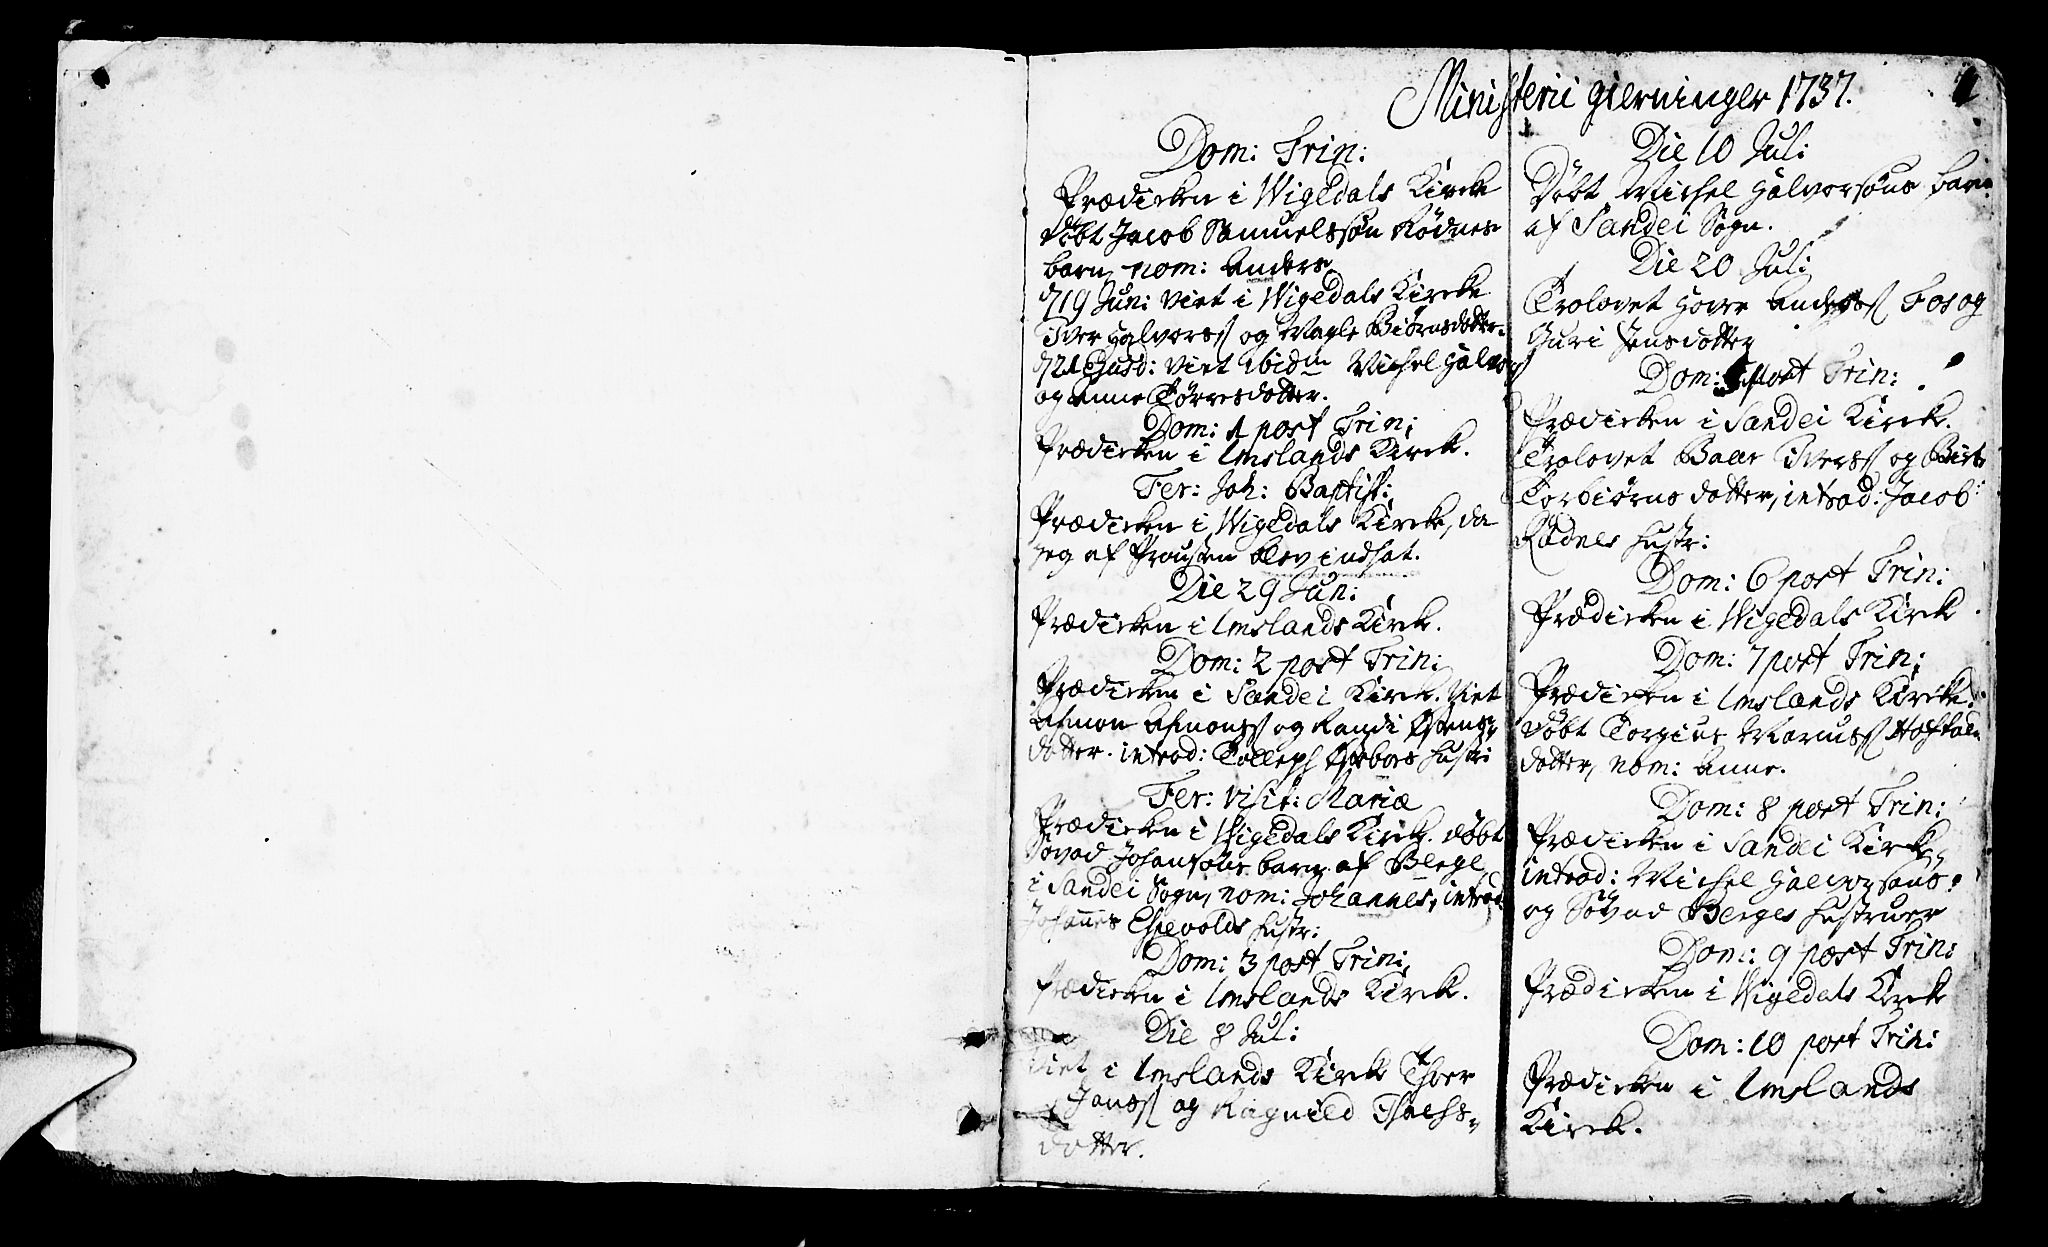 Ministerii gierninger 1737.
1
Dom: Trin:
Prædicken i Wigedals Kircke
døbt Jacob Samuelssøn Rødnes
barn nom: Anders
d 19 Jun: viet i Wigedals Kircke
Iver Halvorss og Magle Biørnsdotter.
d 21 Ejusd: viet ibidm Michel Halvorss
og Anne Tørresdotter.
Dom: 1 post Trin:
Prædicken i Imslands Kirck.
Fer: Joh: Baptist:
Prædicken i Wigedals Kircke, da
jeg af Prousten blev indsat.
Die 29 Jun:
Prædicken i Imslands Kirck.
Dom: 2 post Trin:
Prædicken i Sandei Kirck. Viet
Asmon Asmonss og Randi
dotter. introd: Tolleph Hustr:
Fer: Visit: Mariæ
Prædicken i Wigedals Kirck. døbt
Siovad Johansøns barn af Berge
i Sandei Sogn, nom: Johannes, introd
Johannes Espevolds Hustr:
Dom: 3 post Trin:
Prædicken i Imslands Kirck.
Die 8 Jul:
Viet i Imslands Kirck Thoer
Janss og Ragnild
dotter.
Die 10 Jul:
Døbt Michel Halvorsøns barn
af Sandei Sogn.
Die 20 Jul:
Trolovet Anderss Fos og
Guri Jensdotter
Dom: 5 post Trin:
Prædicken i Sandei Kirck.
Trolovet Baar Iverss og Birt
Torbiørns dotter, introd: Jacob
Rødnes Hustr:
Dom: 6 post Trin:
Prædicken i Wigedals Kirck
Dom: 7 post Trin:
Prædicken i Imslands Kircke.
døbt Torgius
dotter, nom: Anne.
Dom: 8 post Trin:
Prædicken i Sandei Kirck,
introd: Michel Halvorsøns
og Siovad Berges Hustruer
Dom: 9 post Trin:
Prædicken i Wigedals Kirck
Dom: 10 post Trin:
Prædicken i Imslands
Kirck.